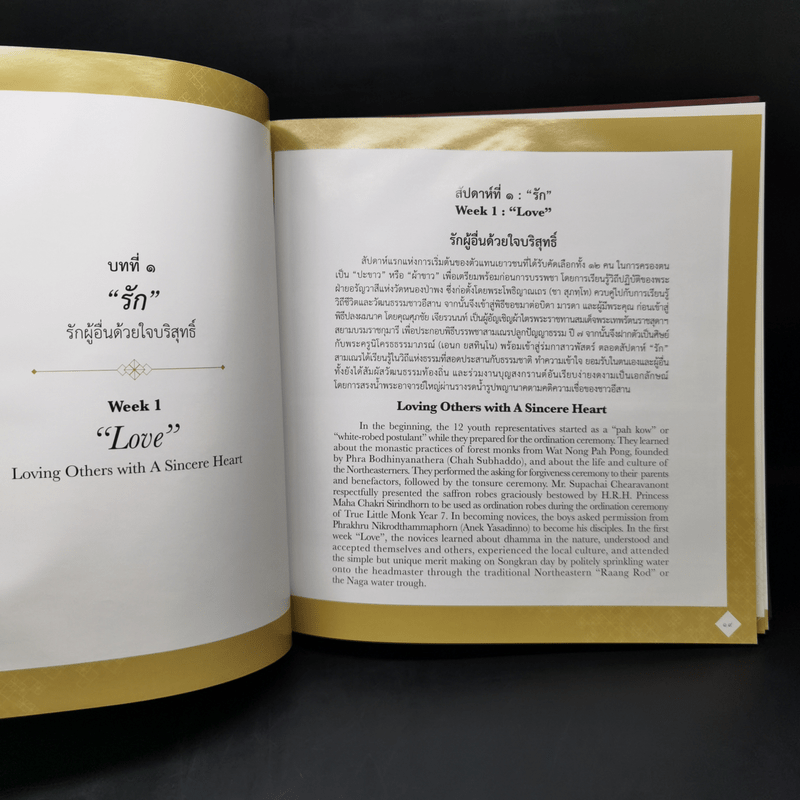 บทที่ ๑
“รัก”
รักผู้อื่นด้วยใจบริสุทธิ์
Week 1
“Love”
Loving Others with A Sincere Heart
สัปดาห์ที่ ๑ : “รัก”
Week 1 : “Love”
รักผู้อื่นด้วยใจบริสุทธิ์
สัปดาห์แรกแห่งการเริ่มต้นของตัวแทนเยาวชนที่ได้รับคัดเลือกทั้ง ๑๒ คน ในการครองตน
เป็น “ปะขาว” หรือ “ผ้าขาว” เพื่อเตรียมพร้อมก่อนการบรรพชา โดยการเรียนรู้วิถีปฏิบัติของพระ
ฝ่ายอรัญวาสีแห่งวัดหนองป่าพง ซึ่งก่อตั้งโดยพระโพธิญาณเถร (ชา สุภทฺโท) ควบคู่ไปกับการเรียนรู้
วิถีชีวิตและวัฒนธรรมชาวอีสาน จากนั้นจึงเข้าสู่พิธีขอขมาต่อบิดา มารดา และผู้มีพระคุณ ก่อนเข้าสู่
พิธีปลงผมนาค โดยคุณศุภชัย เจียรวนนท์ เป็นผู้อัญเชิญผ้าไตรพระราชทานสมเด็จพระเทพรัตนราชสุดาฯ
สยามบรมราชกุมารี เพื่อประกอบพิธีบรรพชาสามเณรปลูกปัญญาธรรม ปี ๗ จากนั้นจึงฝากตัวเป็นศิษย์
กับพระครูนิโครธธรรมาภรณ์ (เอนก ยสทินฺโน) พร้อมเข้าสู่ร่มกาสาวพัสตร์ ตลอดสัปดาห์ “รัก”
สามเณรได้เรียนรู้ในวิถีแห่งธรรมที่สอดประสานกับธรรมชาติ ทำความเข้าใจ ยอมรับในตนเองและผู้อื่น
ทั้งยังได้สัมผัสวัฒนธรรมท้องถิ่น และร่วมงานบุญสงกรานต์อันเรียบง่ายงดงามเป็นเอกลักษณ์
โดยการสรงน้ำพระอาจารย์ใหญ่ผ่านรางรดน้ำรูปพญานาคตามคติความเชื่อของชาวอีสาน
Loving Others with A Sincere Heart
In the beginning, the 12 youth representatives started as a “pah kow” or
“white-robed postulant” while they prepared for the ordination ceremony. They learned
about the monastic practices of forest monks from Wat Nong Pah Pong, founded
by Phra Bodhinyanathera (Chah Subhaddo), and about the life and culture of
the Northeasterners. They performed the asking for forgiveness ceremony to their parents
and benefactors, followed by the tonsure ceremony. Mr. Supachai Chearavanont
respectfully presented the saffron robes graciously bestowed by H.R.H. Princess
Maha Chakri Sirindhorn to be used as ordination robes during the ordination ceremony
of True Little Monk Year 7. In becoming novices, the boys asked permission from
Phrakhru Nikrodthammaphorn (Anek Yasadinno) to become his disciples. In the first
week “Love”, the novices learned about dhamma in the nature, understood and
accepted themselves and others, experienced the local culture, and attended
the simple but unique merit making on Songkran day by politely sprinkling water
onto the headmaster through the traditional Northeastern “Raang Rod” or
the Naga water trough.